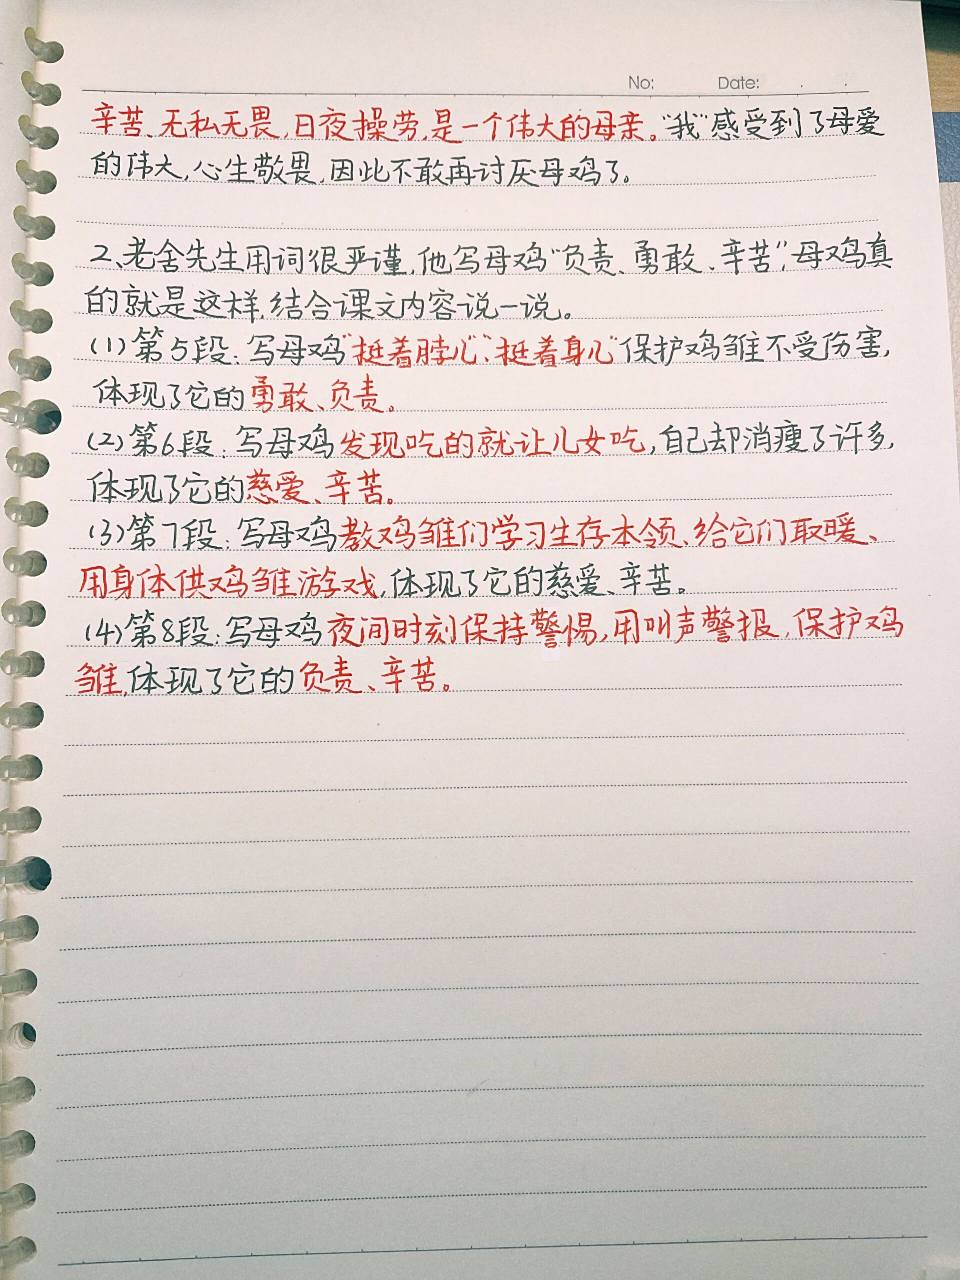 No: Date:
辛苦、无私无畏,日夜操劳,是一个伟大的母亲。“我”感受到了母爱
的伟大,心生敬畏,因此不敢再讨厌母鸡了。
2、老舍先生用词很严谨,他写母鸡“负责、勇敢、辛苦”,母鸡真
的就是这样,结合课文内容说一说。
(1)第5段:写母鸡“挺着脖儿”、“挺着身儿”保护鸡雏不受伤害,
体现了它的勇敢、负责。
(2)第6段:写母鸡发现吃的就让儿女吃,自己却消瘦了许多,
体现了它的慈爱、辛苦。
(3)第7段:写母鸡教鸡雏们学习生存本领、给它们取暖、
用身体供鸡雏游戏,体现了它的慈爱、辛苦。
(4)第8段:写母鸡夜间时刻保持警惕,用叫声警报,保护鸡
雏,体现了它的负责、辛苦。